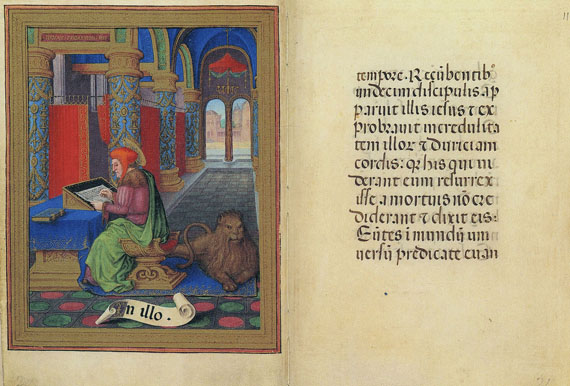 In illo.
tempore. Recūbentibꝰ
undecim discipulis ap
paruit illis iesus ⁊ ex
probrauit incredulita
tem illoꝝ ⁊ duriciam
cordis: qꝛ his qui ui
derant eum resurrex
isse, a mortuis nō cre
diderant ⁊ dixit eis:
Eūtes ī mundū uni
uersū predicate euan